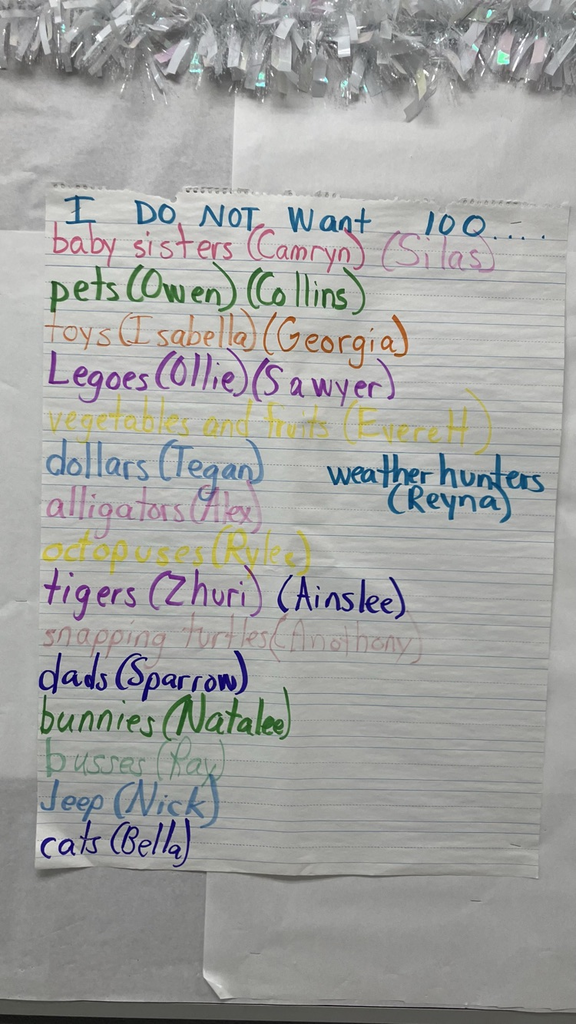 I DO NOT Want 100....
baby sisters (Camryn) (Silas)
pets (Owen) (Collins)
toys (Isabella) (Georgia)
Legoes (Ollie) (Sawyer)
vegetables and fruits (Everett)
dollars (Tegan)
weather hunters
(Reyna)
alligators (Alex)
octopuses (Rylee)
tigers (Zhuri) (Ainslee)
snapping turtles (Anothony)
dads (Sparrow)
bunnies (Natalee)
busses (Ray)
Jeep (Nick)
cats (Bella)